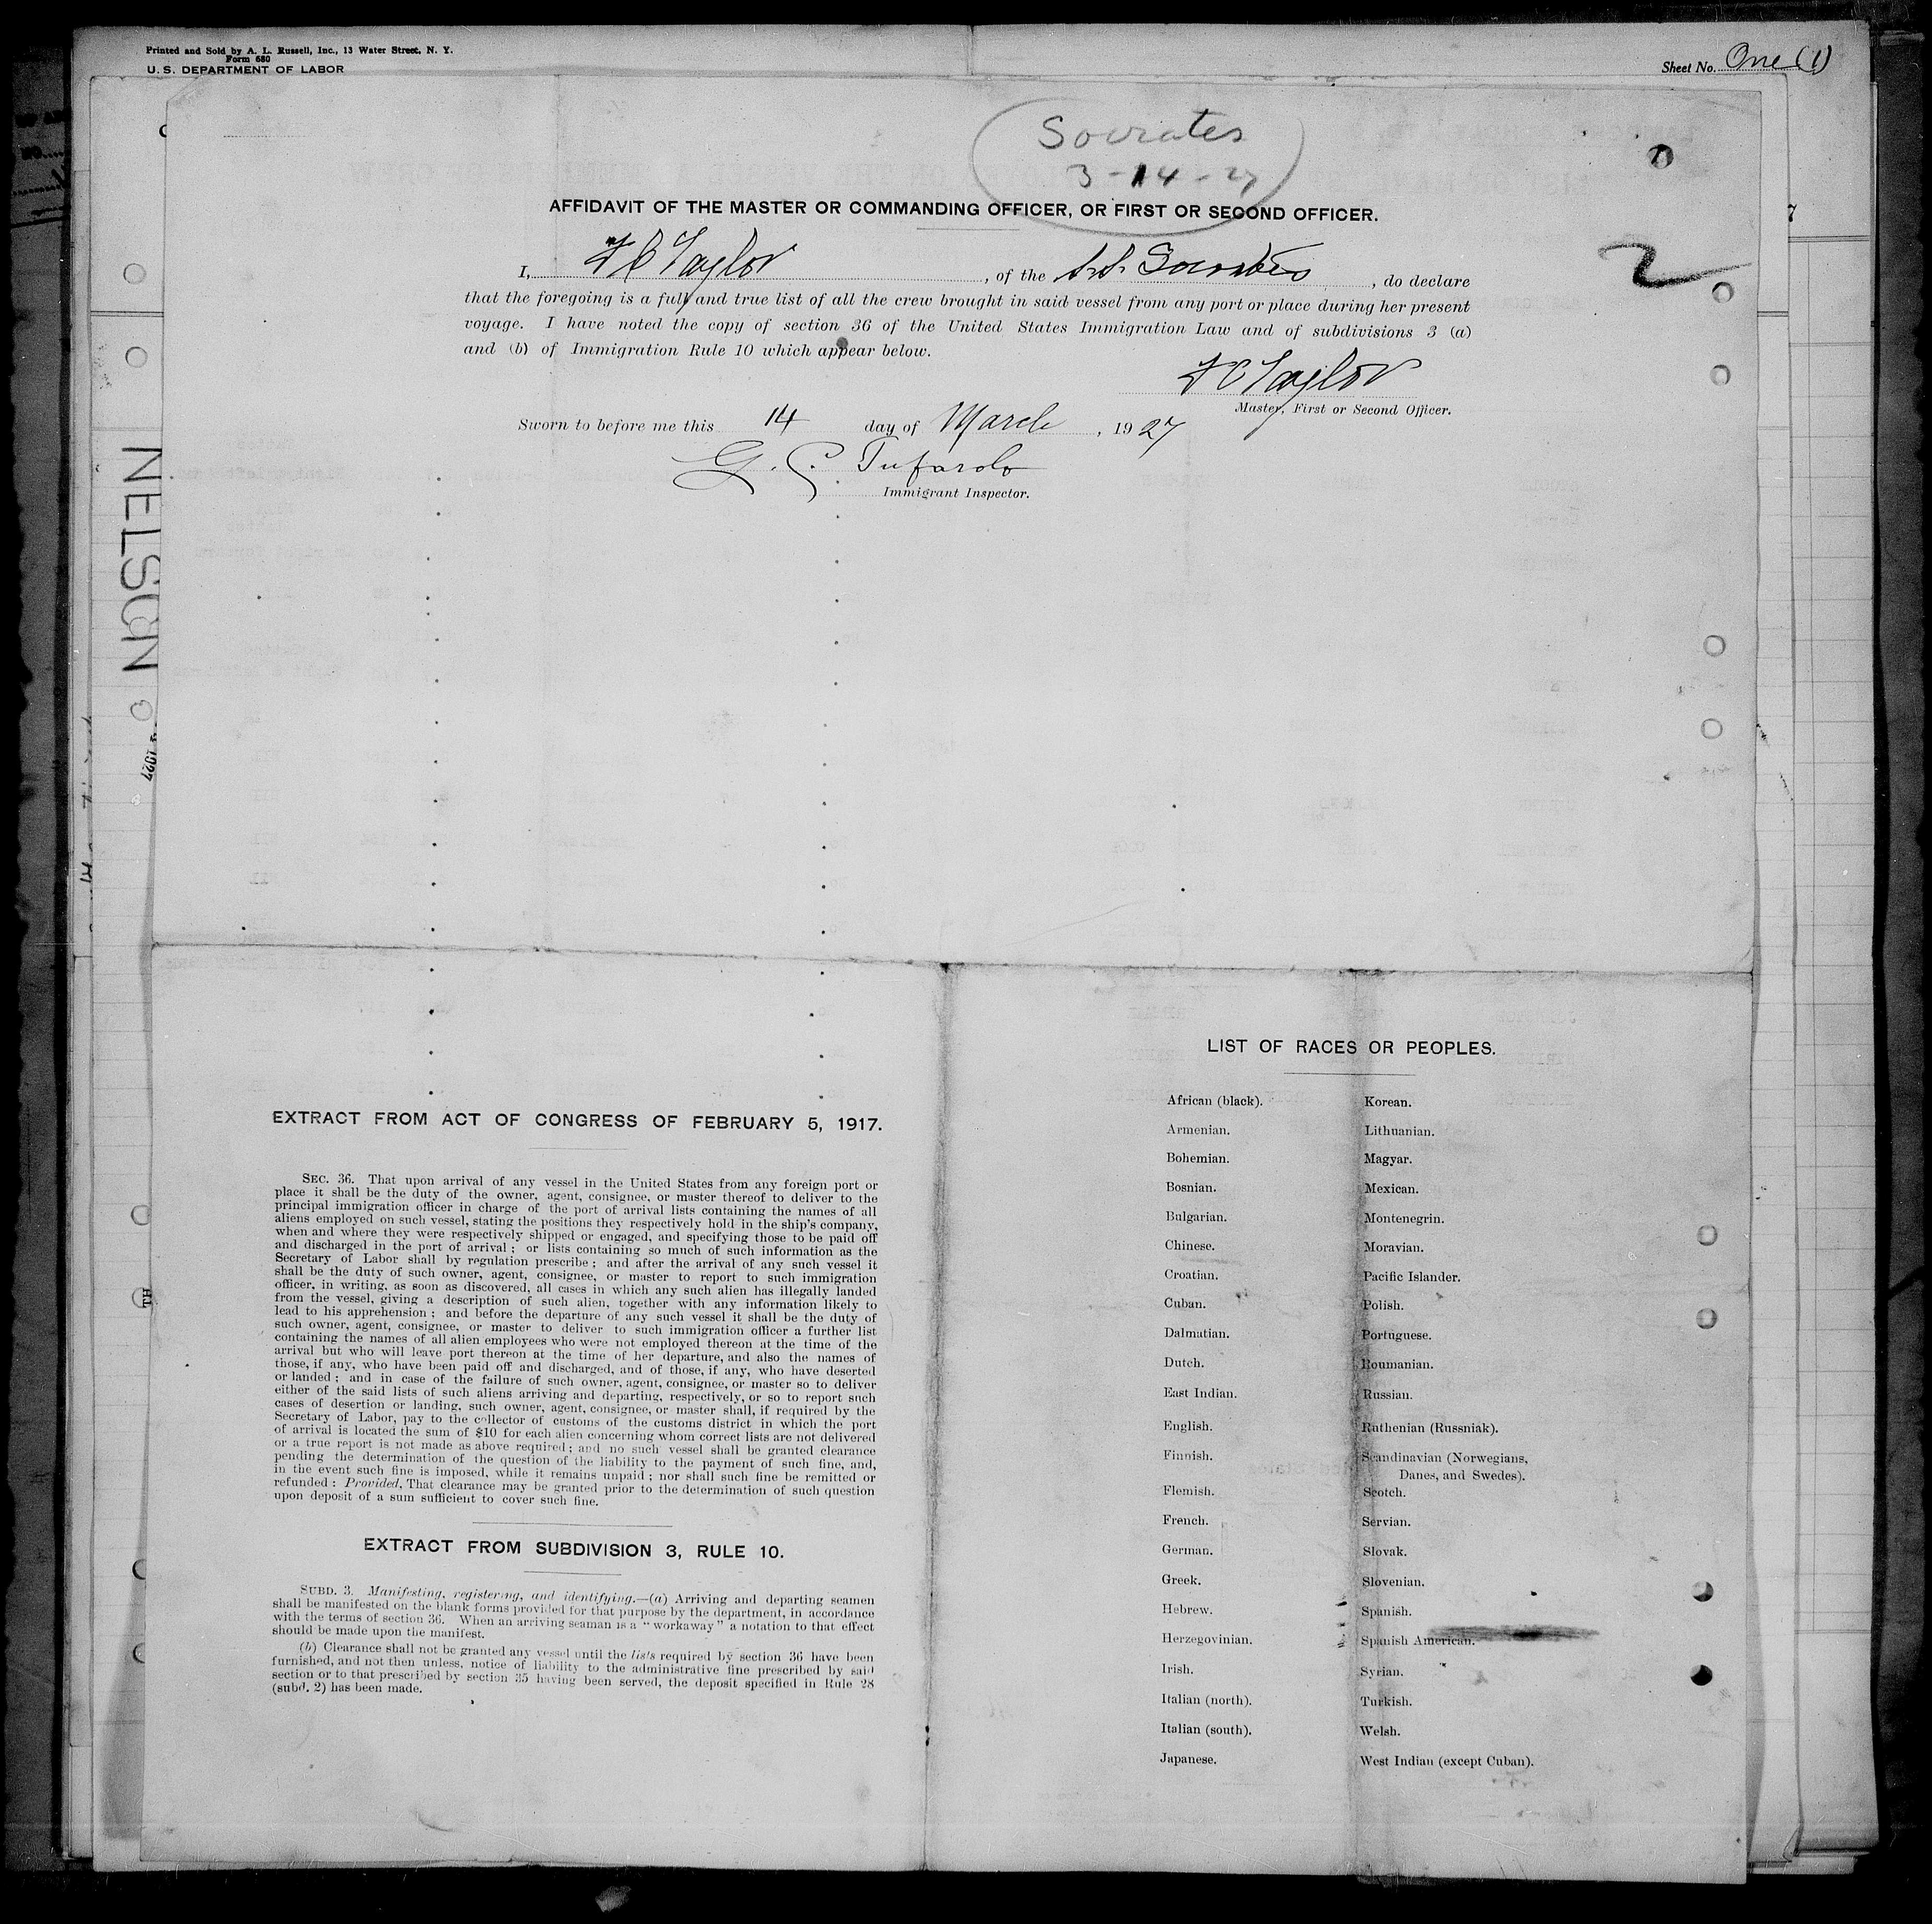 Printed and Sold by A. L. Russell, Inc., 13 Water Street, N. Y.
Form 680
U. S. DEPARTMENT OF LABOR
Sheet No. One (1)
Socrates
3-14-27
AFFIDAVIT OF THE MASTER OR COMMANDING OFFICER, OR FIRST OR SECOND OFFICER.
2
I, Taylor, of the S.S. Socrates, do declare
that the foregoing is a full and true list of all the crew brought in said vessel from any port or place during her present
voyage. I have noted the copy of section 36 of the United States Immigration Law and of subdivisions 3 (a)
and (b) of Immigration Rule 10 which appear below.
Taylor
Master, First or Second Officer.
Sworn to before me this 14 day of March, 1927
G.
Immigrant Inspector.
NELSON
1927
EXTRACT FROM ACT OF CONGRESS OF FEBRUARY 5, 1917.
SEC. 36. That upon arrival of any vessel in the United States from any foreign port or
place it shall be the duty of the owner, agent, consignee, or master thereof to deliver to the
principal immigration officer in charge of the port of arrival lists containing the names of all
aliens employed on such vessel, stating the positions they respectively hold in the ship's company,
when and where they were respectively shipped or engaged, and specifying those to be paid off
and discharged in the port of arrival; or lists containing so much of such information as the
Secretary of Labor shall by regulation prescribe; and after the arrival of any such vessel it
shall be the duty of such owner, agent, consignee, or master to report to such immigration
officer, in writing, as soon as discovered, all cases in which any such alien has illegally landed
from the vessel, giving a description of such alien, together with any information likely to
lead to his apprehension; and before the departure of any such vessel it shall be the duty of
such owner, agent, consignee, or master to deliver to such immigration officer a further list
containing the names of all alien employees who were not employed thereon at the time of the
arrival but who will leave port thereon at the time of her departure, and also the names of
those, if any, who have been paid off and discharged, and of those, if any, who have deserted
or landed; and in case of the failure of such owner, agent, consignee, or master so to deliver
either of the said lists of such aliens arriving and departing, respectively, or so to report such
cases of desertion or landing, such owner, agent, consignee, or master shall, if required by the
Secretary of Labor, pay to the collector of customs of the customs district in which the port
of arrival is located the sum of $10 for each alien concerning whom correct lists are not delivered
or a true report is not made as above required; and no such vessel shall be granted clearance
pending the determination of the question of the liability to the payment of such fine, and,
in the event such fine is imposed, while it remains unpaid; nor shall such fine be remitted or
refunded: Provided, That clearance may be granted prior to the determination of such question
upon deposit of a sum sufficient to cover such fine.
EXTRACT FROM SUBDIVISION 3, RULE 10.
SUBD. 3. Manifesting, registering, and identifying.—(a) Arriving and departing seamen
shall be manifested on the blank forms provided for that purpose by the department, in accordance
with the terms of section 36. When an arriving seaman is a "workaway" a notation to that effect
should be made upon the manifest.
(b) Clearance shall not be granted any vessel until the lists required by section 36 have been
furnished, and not then unless, notice of liability to the administrative fine prescribed by said
section or to that prescribed by section 35 having been served, the deposit specified in Rule 28
(subd. 2) has been made.
LIST OF RACES OR PEOPLES.
African (black).
Armenian.
Bohemian.
Bosnian.
Bulgarian.
Chinese.
Croatian.
Cuban.
Dalmatian.
Dutch.
East Indian.
English.
Finnish.
Flemish.
French.
German.
Greek.
Hebrew.
Herzegovinian.
Irish.
Italian (north).
Italian (south).
Japanese.
Korean.
Lithuanian.
Magyar.
Mexican.
Montenegrin.
Moravian.
Pacific Islander.
Polish.
Portuguese.
Roumanian.
Russian.
Ruthenian (Russniak).
Scandinavian (Norwegians,
Danes, and Swedes).
Scotch.
Servian.
Slovak.
Slovenian.
Spanish.
Spanish American.
Syrian.
Turkish.
Welsh.
West Indian (except Cuban).